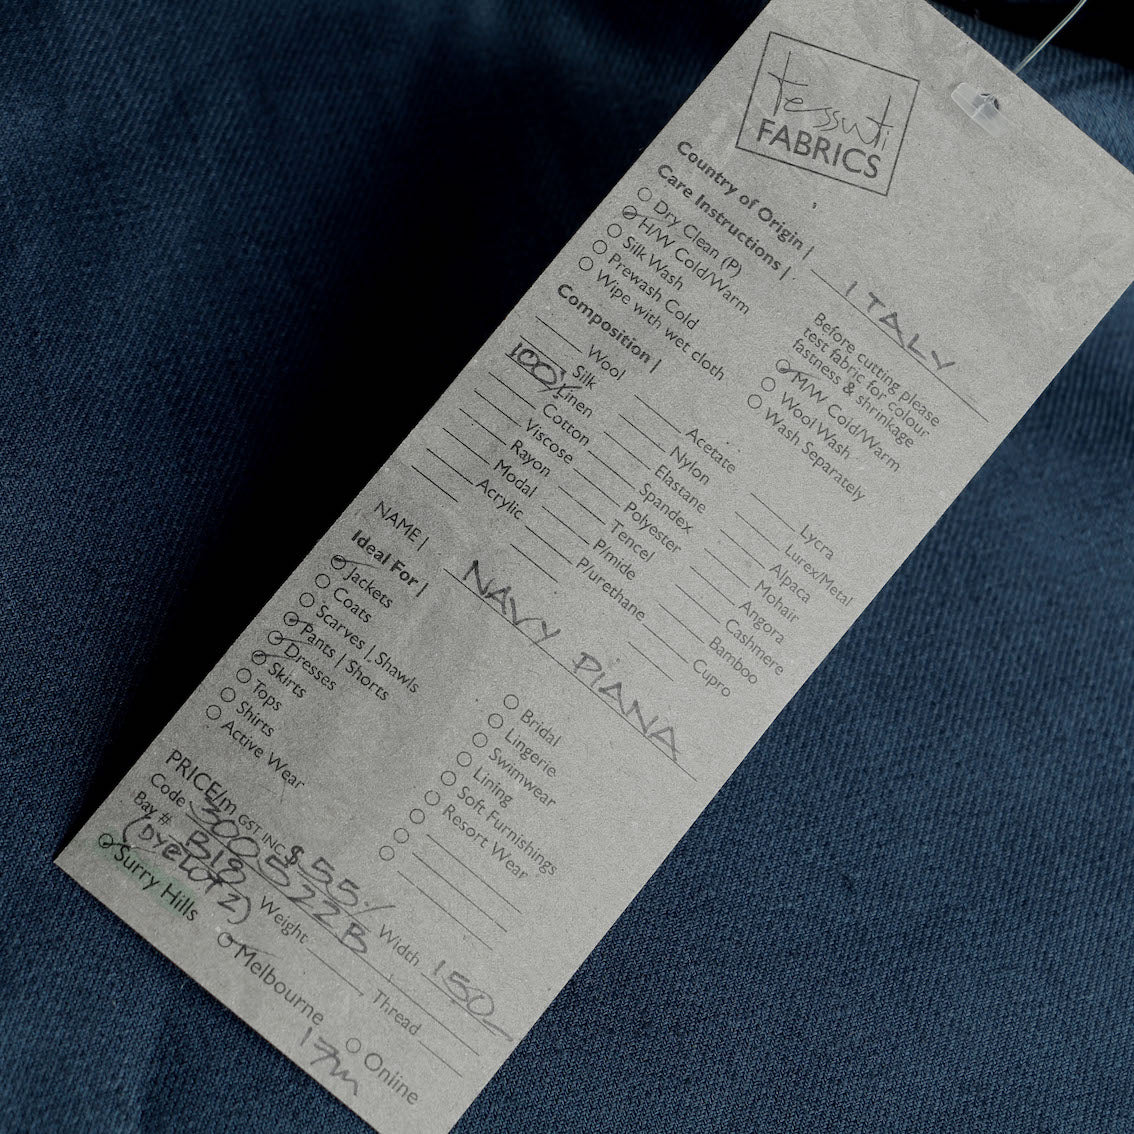 tessuti
FABRICS
Country of Origin | ITALY
Care Instructions |
Dry Clean (P)
H/W Cold/Warm
Silk Wash
Prewash Cold
Wipe with wet cloth
Before cutting please
test fabric for colour
fastness & shrinkage
M/W Cold/Warm
Wool Wash
Wash Separately
Composition |
Wool
Silk
100% Linen
Cotton
Viscose
Rayon
Modal
Acrylic
Acetate
Nylon
Elastane
Spandex
Polyester
Tencel
P/mide
P/urethane
Lycra
Lurex/Metal
Alpaca
Mohair
Angora
Cashmere
Bamboo
Cupro
NAME | NAVY DIANA
Ideal For |
Jackets
Coats
Scarves | Shawls
Pants | Shorts
Dresses
Skirts
Tops
Shirts
Active Wear
Bridal
Lingerie
Swimwear
Lining
Soft Furnishings
Resort Wear
PRICE/m GST INC $55
Code 300522B Width 150
Bay # B18 Weight Thread
(DYELOT 2)
Surry Hills Melbourne Online
17m